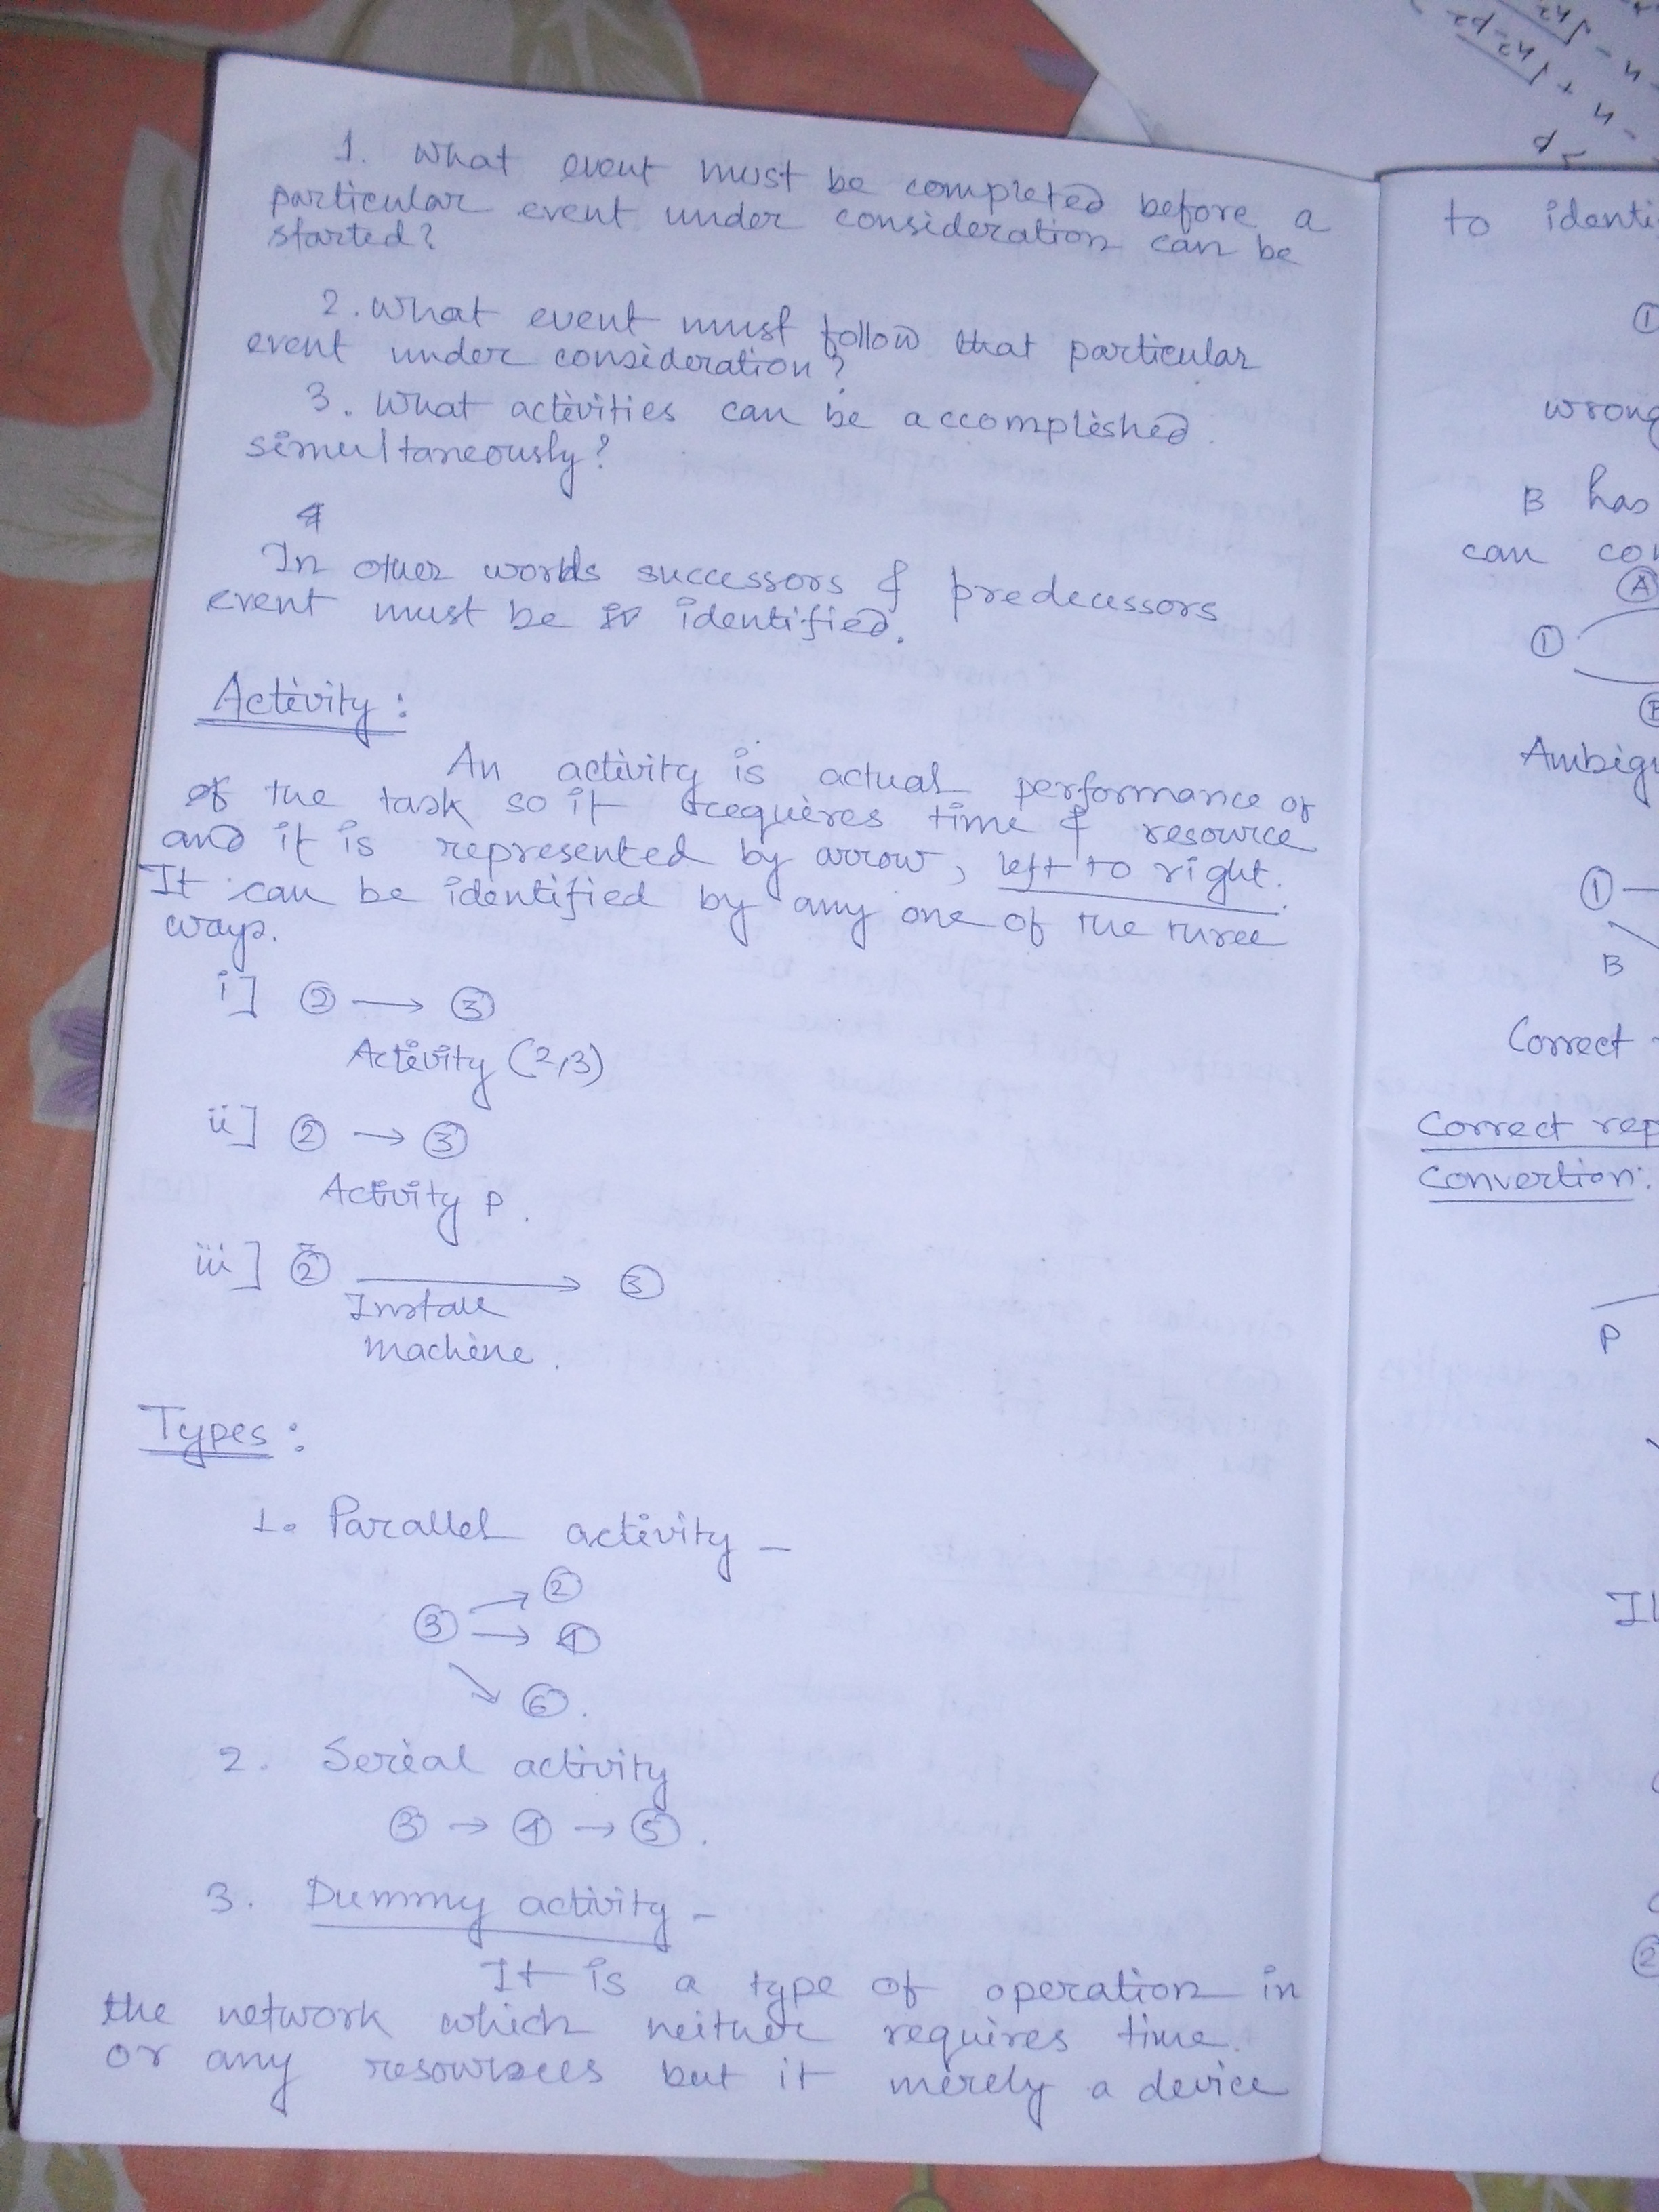 1. What event must be completed before a
particular event under consideration can be
started?
2. What event must follow that particular
event under consideration?
3. What activities can be accomplished.
simultaneously?
4
In other words successors & predecessors
event must be identified.
Activity:
An activity is actual performance of
of the task so it requires time & resource
and it is represented by arrow, left to right.
It can be identified by any one of the three
ways.
i] ② → ③
Activity (2,3)
ii] ② → ③
Activity P.
iii] ② → ③
Install
machine.
Types:
1. Parallel activity -
②
③ → ④
⑥.
2. Serial activity
③ → ④ → ⑤.
3. Dummy activity -
It is a type of operation in
the network which neither requires time.
or any resources but it merely a device
to identi
①
wrong
B has
can co
A
①
B
Ambig
①
B
Correct
Correct rep
Convertion:
P
②